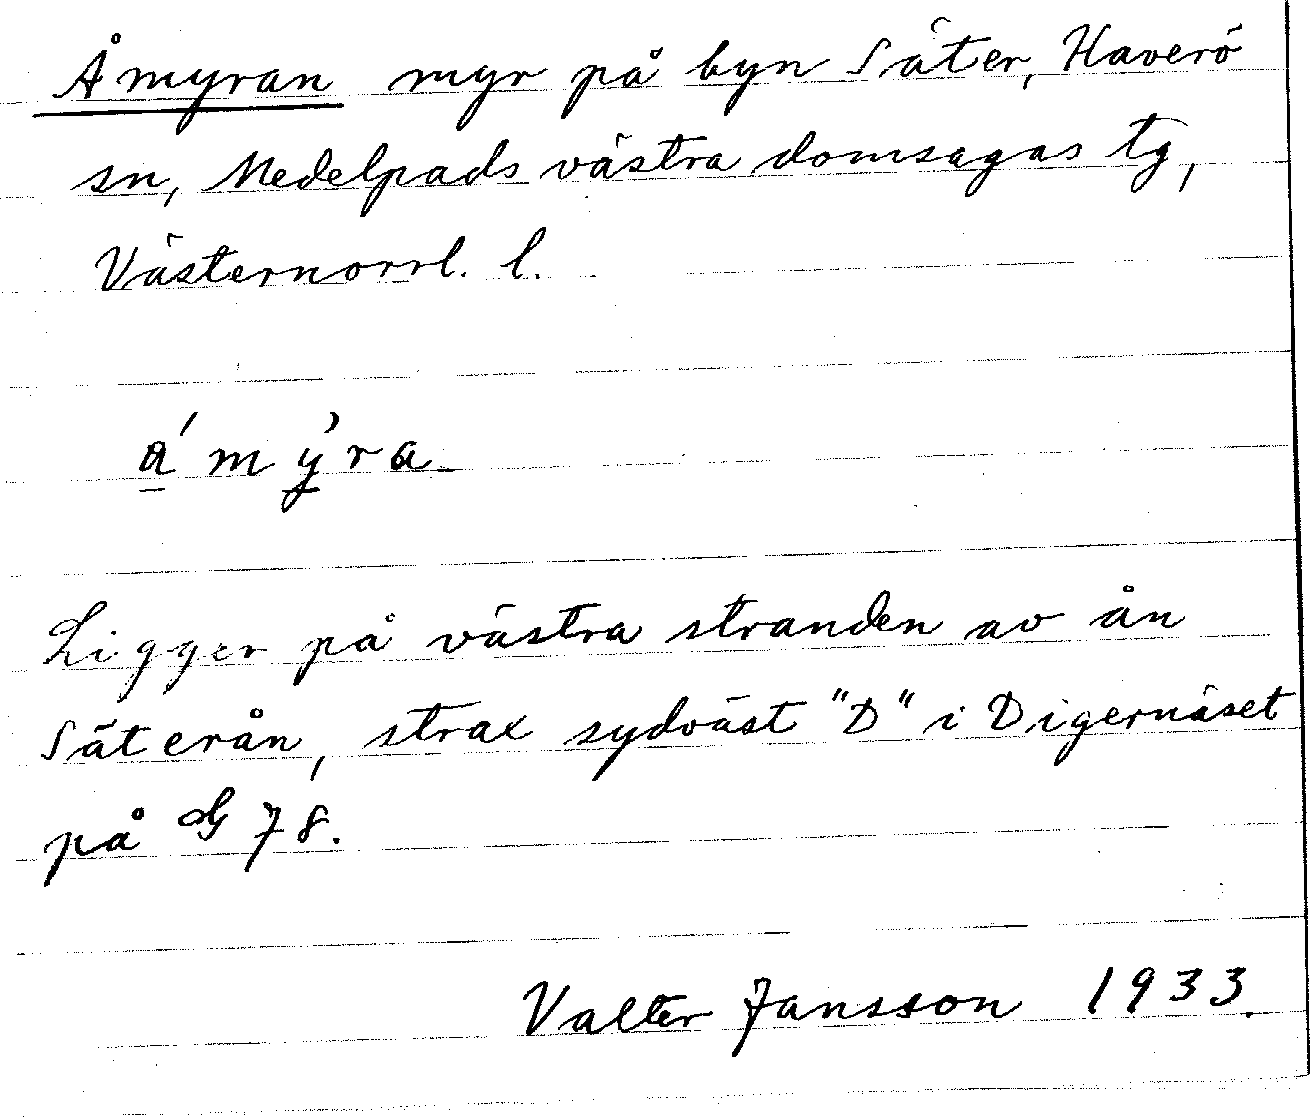 Åmyran myr på byn Säter, Haverö
sn, Medelpads västra domsagas tg,
Västernorrl. l.
a̱ ́ m y̱ ̀ r a
Ligger på västra stranden av ån
Säterån, strax sydväst "D" i Digernäset
på G 78.
Valter Jansson 1933.